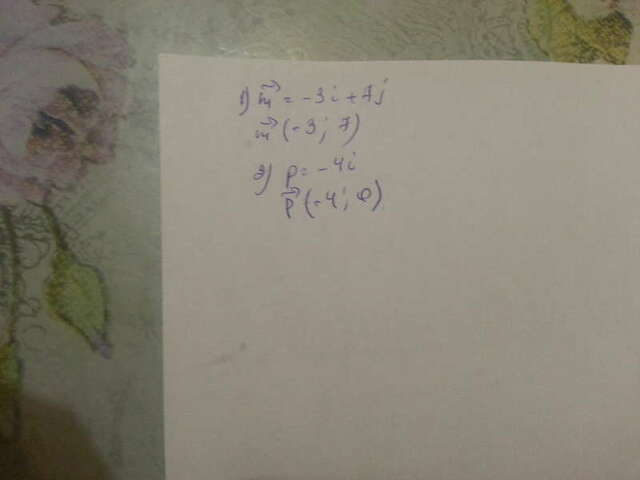 1) m⃗ = -3i + 7j
m⃗ (-3; 7)
2) p = -4i
p⃗ (-4; 0)